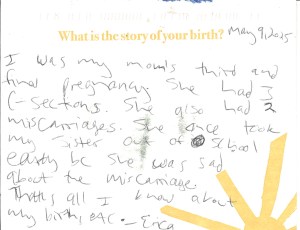 What is the story of your birth? May 9, 2025
I was my mom's third and
final pregnancy. She had 3
C-sections. She also had 2
miscarriages. She once took
my sister out of school
early bc she was sad
about the miscarriage.
That's all I know about
my birth, oac. - Erica